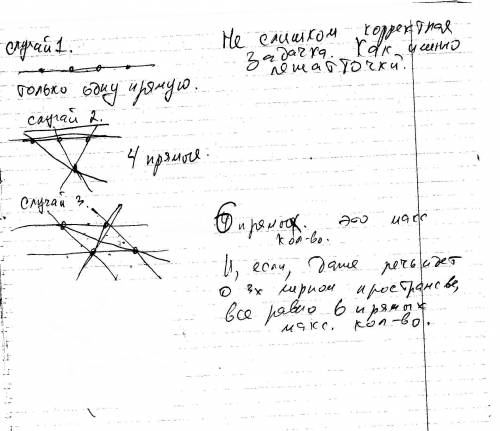 случай 1.
только одну прямую.
случай 2.
4 прямые.
случай 3.
Не слишком корректная
задачка. Как именно
лежат точки?
6 прямых. это макс
кол-во.
И, если, даже речь идет
о 3х мирном пространстве,
все равно 6 прямых
макс. кол-во.